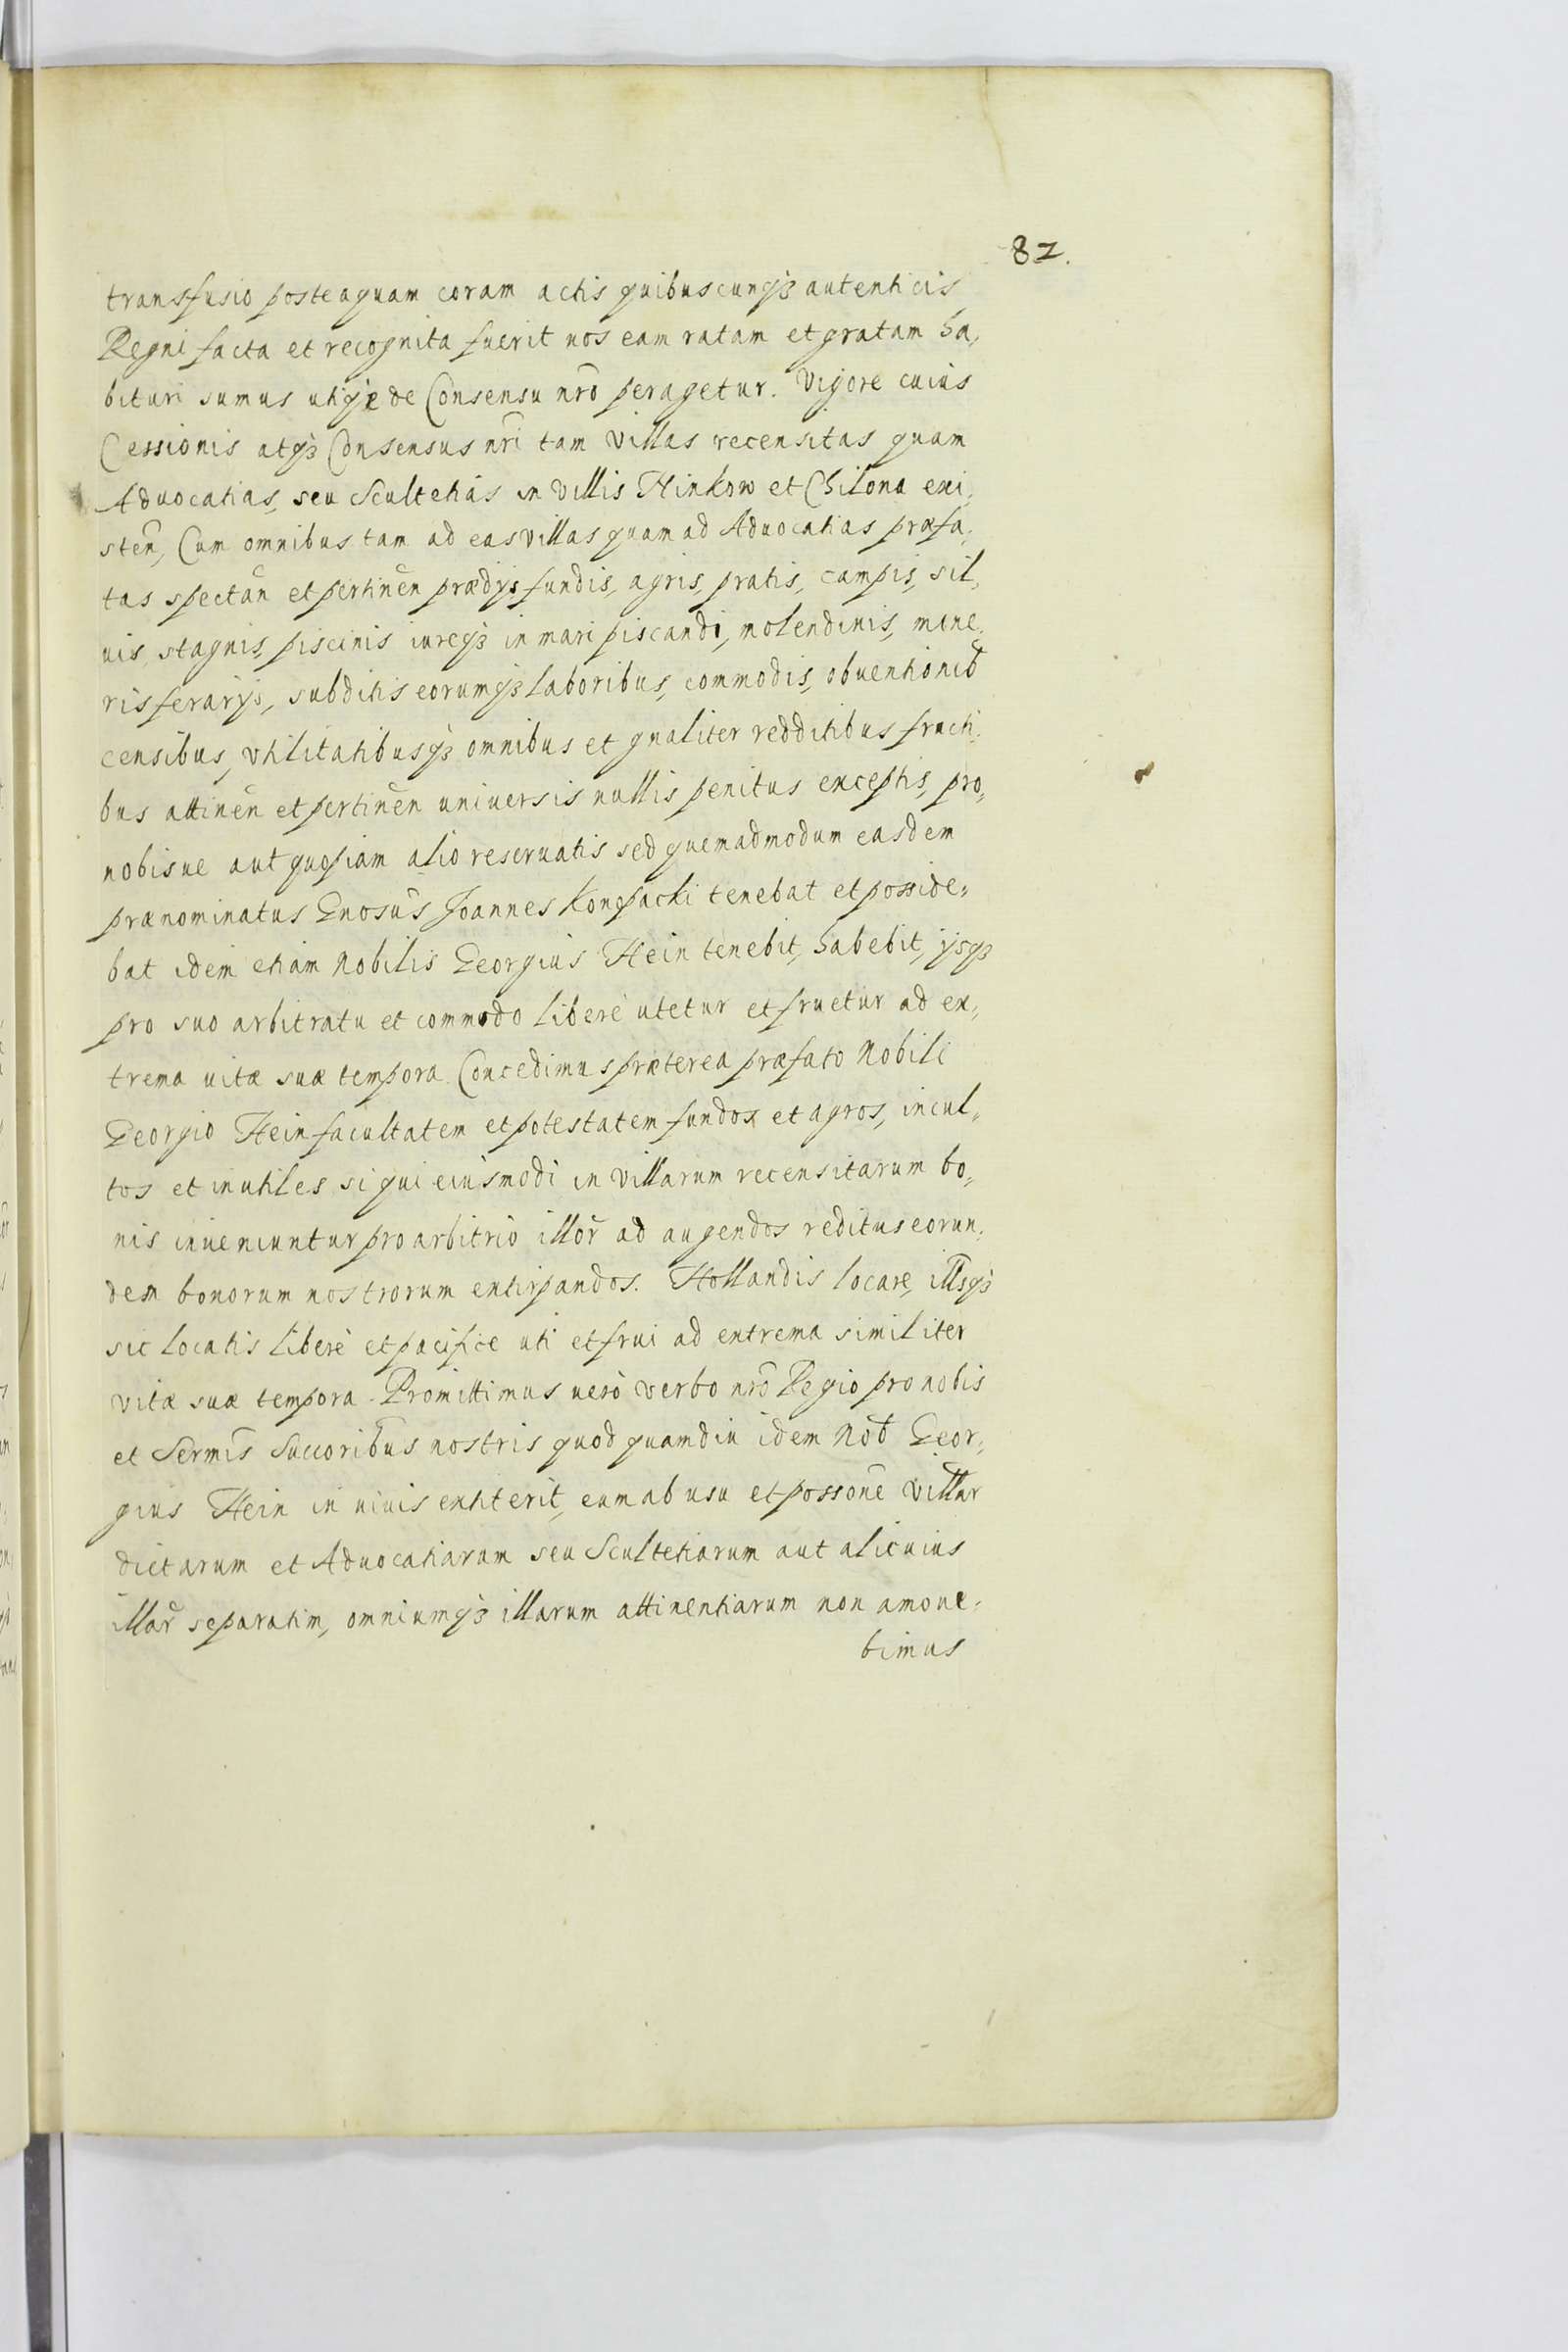 82.
transfusio posteaquam coram actis quibuscunqȝ autenticis
Regni facta et recognita fuerit nos eam ratam et gratam ha,
bituri sumus utiqȝ de Consensu nr̃o peragetur. Vigore cuius
Cessionis atqȝ Consensus nr̃i tam Villas recensitas quam
Aduocatias, seu Scultetias in Villis Hinkow et Chilona exi,
steñ, Cum omnibus tam ad eas villas quam ad Aduocatias præfa,
tas spectañ et pertineñ prædijs, fundis, agris, pratis, campis, sil,
uis, stagnis, piscinis iureqȝ in mari piscandi, molendinis, mine,
ris ferarijs, subditis eorumqȝ laboribus, commodis, obuentionib̃
censibus, Vtilitatibusqȝ omnibus et gñaliter redditibus fructi,
bus attineñ et pertineñ uniuersis nullis penitus exceptis, pro,
nobisue aut quopiam alio reseruatis sed quemadmodum easdem
prænominatus Gnosus Joannes Konopacki tenebat et posside,
bat idem etiam Nobilis Georgius Hein tenebit, habebit, ijsqȝ
pro suo arbitratu et commodo liberè utetur et fruetur ad ex,
trema uitæ suæ tempora. Concedimus præterea præfato Nobili
Georgio Hein facultatem et potestatem fundos et agros, incul,
tos et inutiles si qui eiusmodi in Villarum recensitarum bo,
nis inueniuntur pro arbitrio illor̃ ad augendos reditus eorun,
dem bonorum nostrorum extirpandos. Hollandis locare, illisqȝ
sic locatis liberè et pacifice uti et frui ad extrema similiter
vitæ suæ tempora. Promittimus uerò verbo nr̃o Regio pro nobis
et Serm̃is Succoribus nostris quod quamdiu idem Nob̃ Geor,
gius Hein in uiuis extiterit, eum ab usu et possone Villar̃
dictarum et Aduocatiarum seu Scultetiarum aut alicuius
illar̃ separatim, omniumqȝ illarum attinentiarum non amoue,
bimus